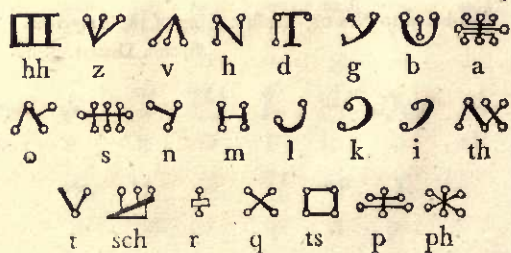 hh z v h d g b a
o s n m l k i th
t sch r q ts p ph